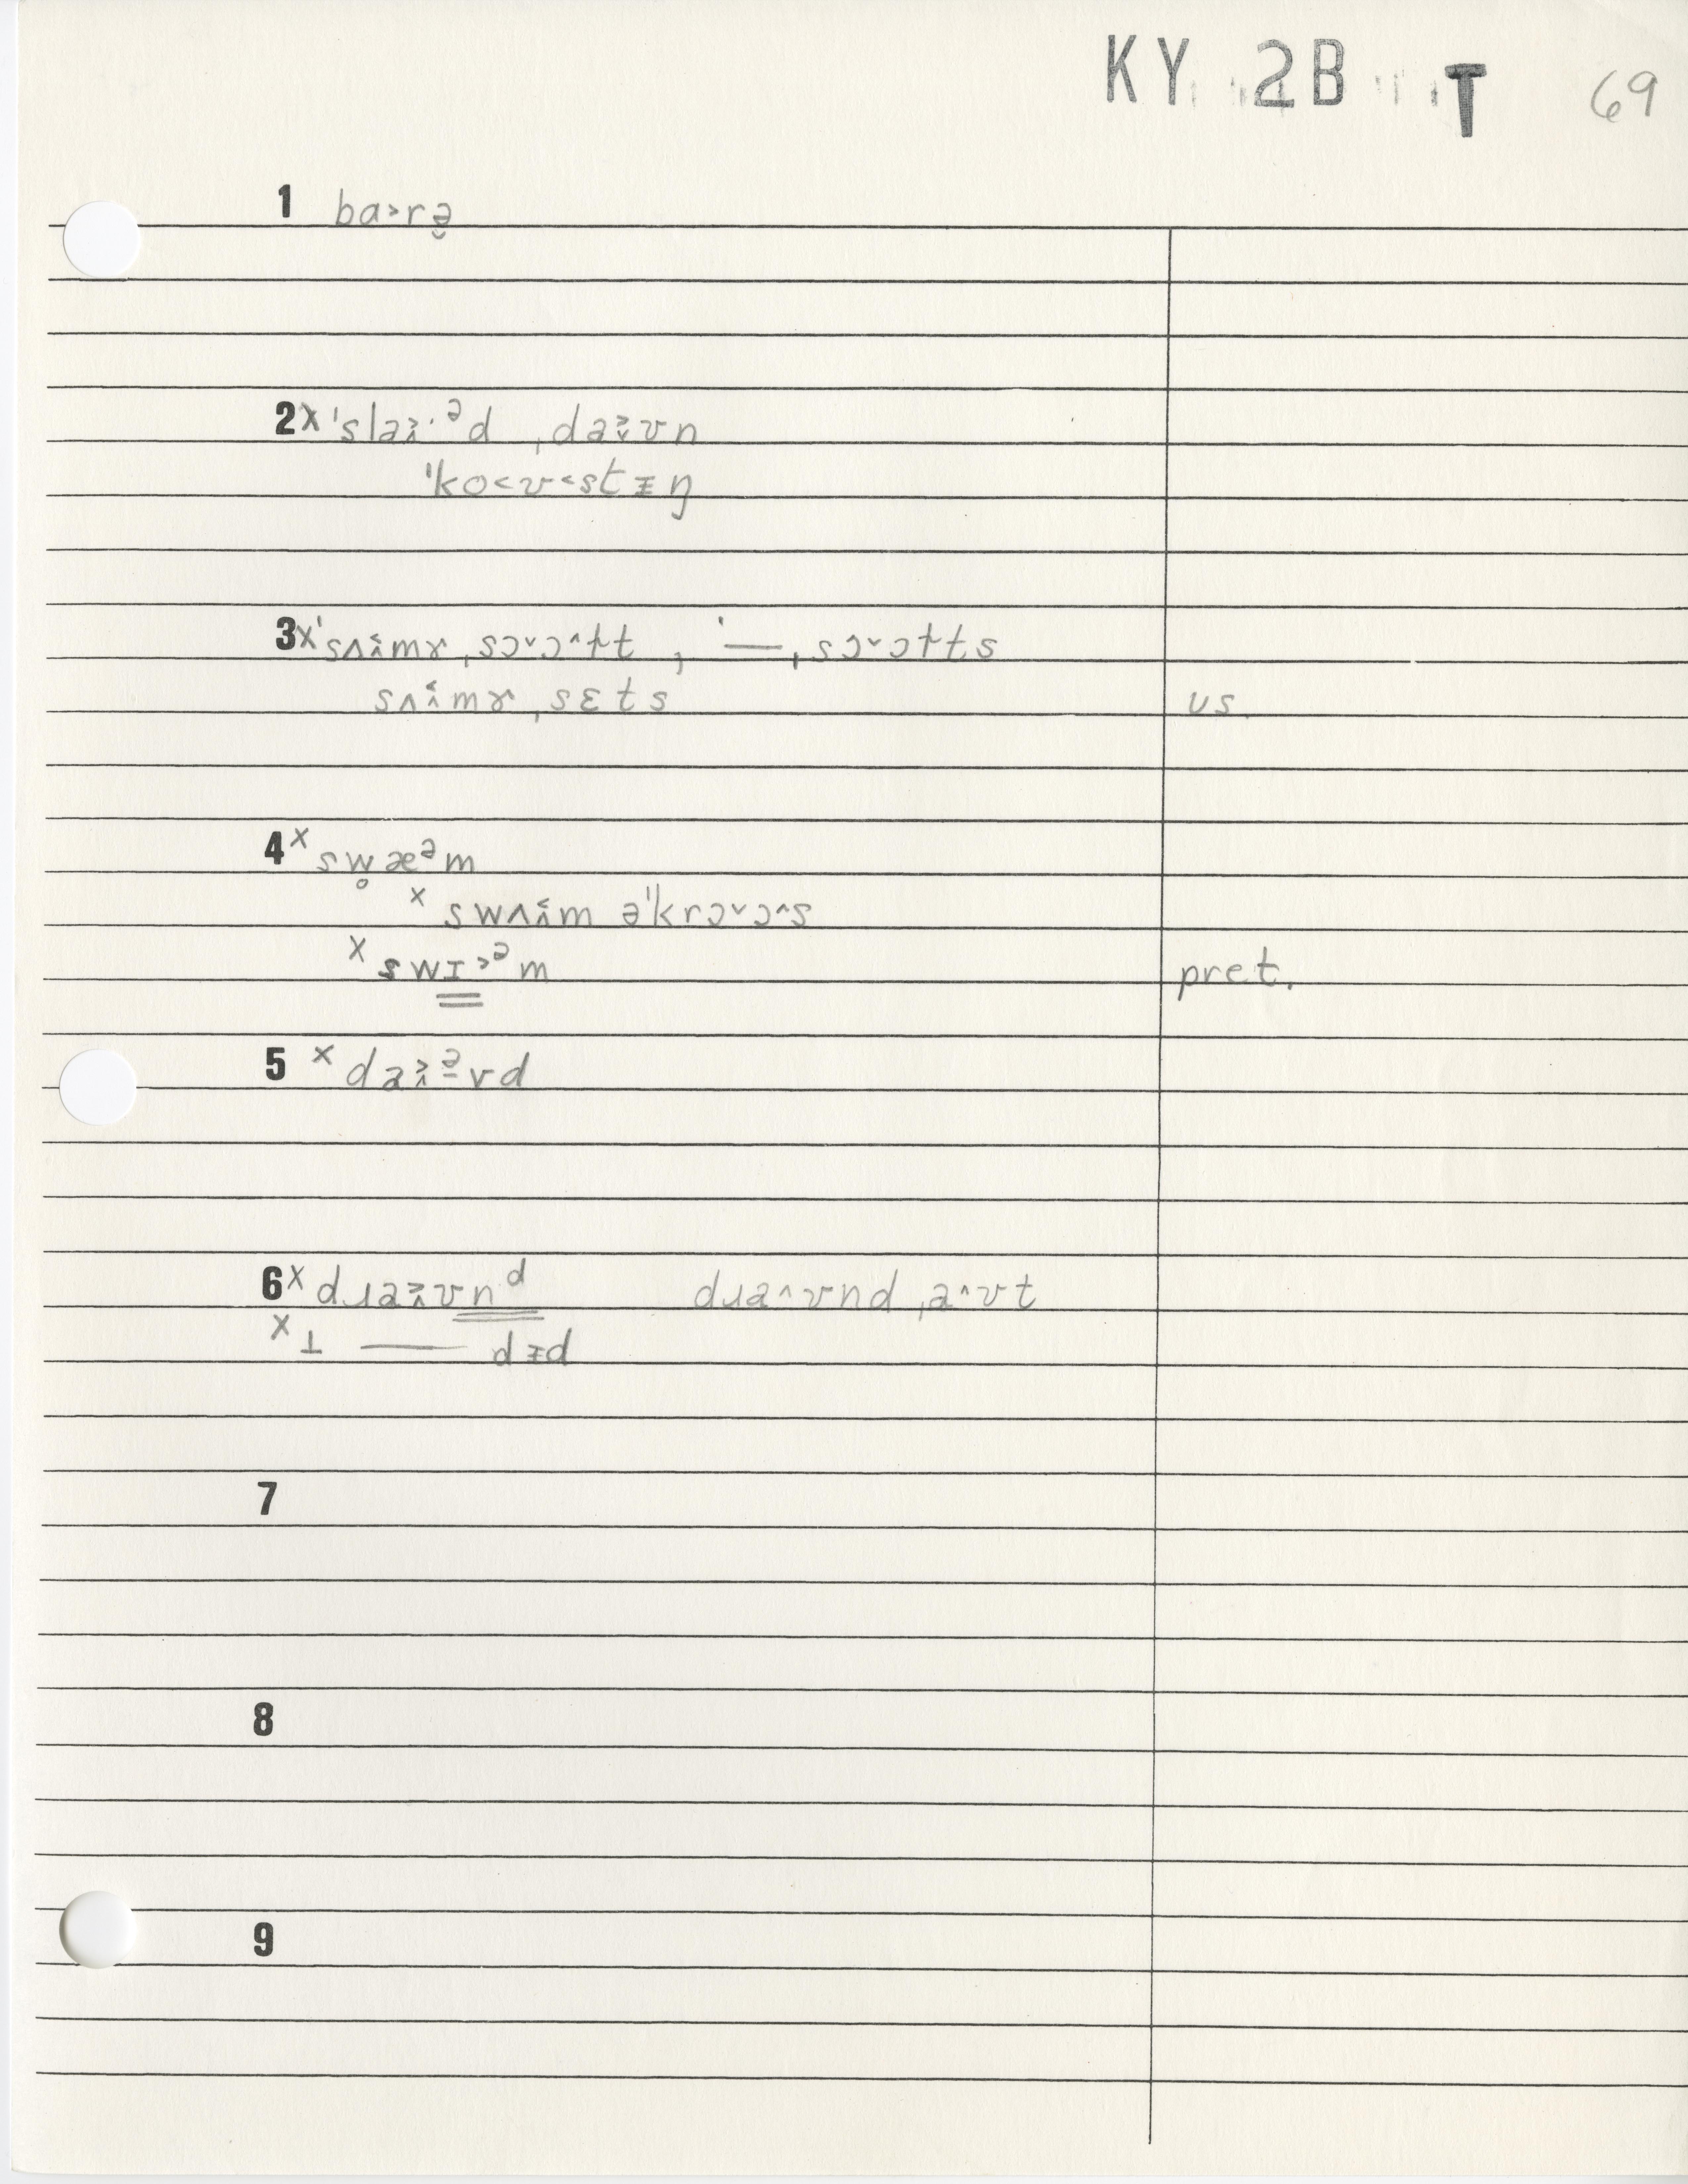 KY 2B T 69
1 ba˃rə̮
2 x ˈslaɪ·ᵊd ˌdaʊn
ˈko˂ʊ˂stɪŋ
3 x ˈsʌɪmɤ ˌsɔ˅ɔ˄ɫt , ˈ— ˌsɔ˅ɔɫts
sʌɪmɤ ˌsɛts us.
4 x sw̥æᵊm
x swʌɪm əˈkrɔ˅ɔ˄s
x swɪ˃ᵊm pret.
5 x daɪᵊvd
6 x dɹaʊnᵈ dɹa˄ʊnd ˌa˄ʊt
x ⊥ — dɨd
7
8
9